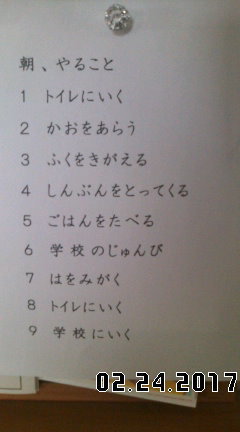 朝、やること
1 トイレにいく
2 かおをあらう
3 ふくをきがえる
4 しんぶんをとってくる
5 ごはんをたべる
6 学校のじゅんび
7 はをみがく
8 トイレにいく
9 学校にいく
02.24.2017